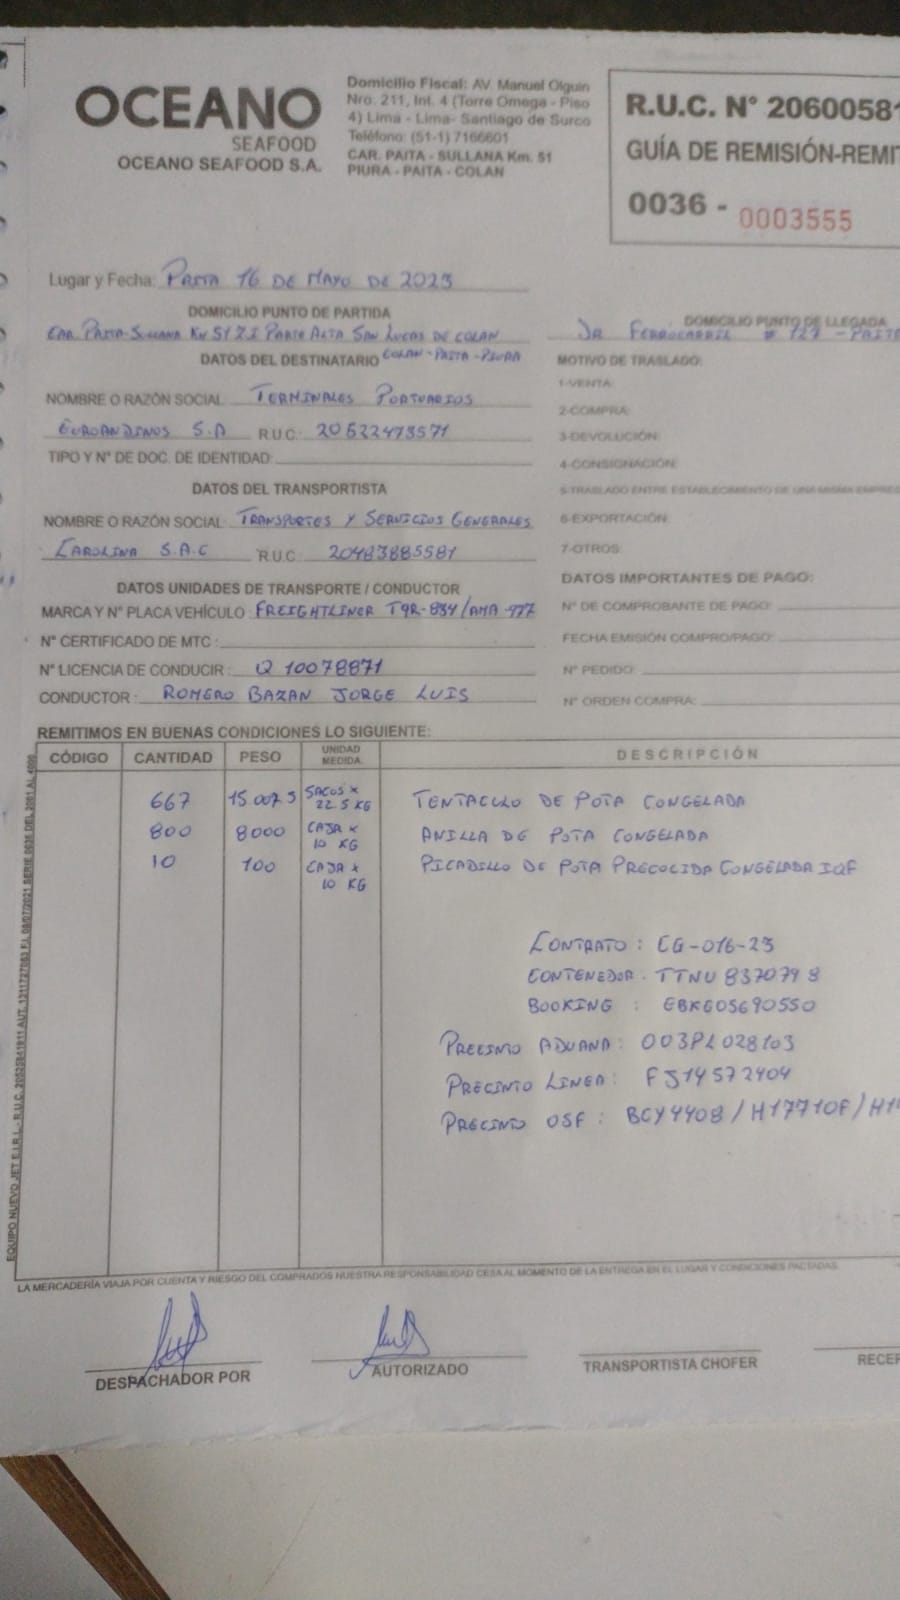 OCEANO
SEAFOOD
OCEANO SEAFOOD S.A.
Domicilio Fiscal: AV. Manuel Olguin
Nro. 211, Int. 4 (Torre Omega - Piso
4) Lima - Lima- Santiago de Surco
Teléfono: (51-1) 7166601
CAR. PAITA - SULLANA Km. 51
PIURA - PAITA - COLAN
R.U.C. N° 20600581
GUÍA DE REMISIÓN-REMIT
0036 - 0003555
Lugar y Fecha: PAITA 16 DE MAYO DE 2023
DOMICILIO PUNTO DE PARTIDA
CAR. PAITA-SULLANA KM 51 Z.I PARTE ALTA SAN LUCAS DE COLAN
COLAN-PAITA-PIURA
DOMICILIO PUNTO DE LLEGADA
JR FERROCARRIL # 127 - PAITA
DATOS DEL DESTINATARIO
NOMBRE O RAZÓN SOCIAL TERMINALES PORTUARIOS
EUROANDINOS S.A R.U.C.: 20522473571
TIPO Y N° DE DOC. DE IDENTIDAD:
DATOS DEL TRANSPORTISTA
NOMBRE O RAZÓN SOCIAL: TRANSPORTES Y SERVICIOS GENERALES
CAROLINA S.A.C R.U.C.: 20483885581
DATOS UNIDADES DE TRANSPORTE / CONDUCTOR
MARCA Y N° PLACA VEHÍCULO: FREIGHTLINER T9R-834/AMA-977
N° CERTIFICADO DE MTC:
N° LICENCIA DE CONDUCIR: Q 10078871
CONDUCTOR: ROMERO BAZAN JORGE LUIS
MOTIVO DE TRASLADO:
1-VENTA:
2-COMPRA:
3-DEVOLUCIÓN:
4-CONSIGNACIÓN:
5-TRASLADO ENTRE ESTABLECIMIENTO DE UNA MISMA EMPRES
6-EXPORTACIÓN:
7-OTROS:
DATOS IMPORTANTES DE PAGO:
N° DE COMPROBANTE DE PAGO:
FECHA EMISIÓN COMPRO/PAGO:
N° PEDIDO:
N° ORDEN COMPRA:
REMITIMOS EN BUENAS CONDICIONES LO SIGUIENTE:
CÓDIGO CANTIDAD PESO UNIDAD MEDIDA. DESCRIPCIÓN
667 15 007.5 SACOS x 22.5 KG TENTACULO DE POTA CONGELADA
800 8000 CAJA x 10 KG ANILLA DE POTA CONGELADA
10 100 CAJA x 10 KG PICADILLO DE POTA PRECOCIDA CONGELADA IQF
CONTRATO: CG-016-23
CONTENEDOR: TTNU 837079 8
BOOKING: EBKG05690550
PRECINTO ADUANA: 003PL028103
PRECINTO LINEA: FJ14572404
PRECINTO OSF: BCY4408/H17710F/H1
EQUIPO NUEVO JET E.I.R.L - R.U.C. 20525841811 AUT. 1211727083 F.I. 09/07/2021 SERIE 0036 DEL 2001 AL 4000
LA MERCADERÍA VIAJA POR CUENTA Y RIESGO DEL COMPRADOS NUESTRA RESPONSABILIDAD CESA AL MOMENTO DE LA ENTREGA EN EL LUGAR Y CONDICIONES PACTADAS.
DESPACHADOR POR
AUTORIZADO
TRANSPORTISTA CHOFER
RECEP